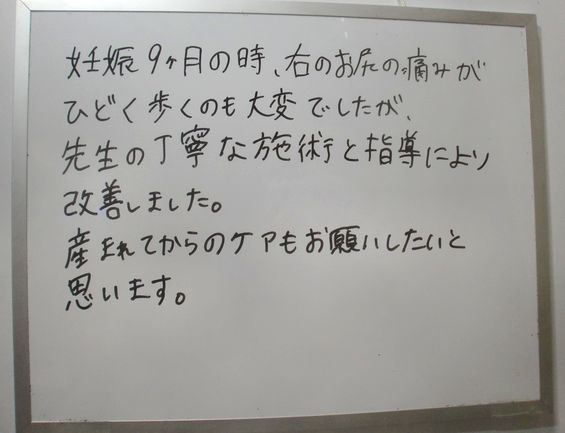 妊娠9ヶ月の時、右のお尻の痛みが
ひどく歩くのも大変でしたが、
先生の丁寧な施術と指導により
改善しました。
産まれてからのケアもお願いしたいと
思います。